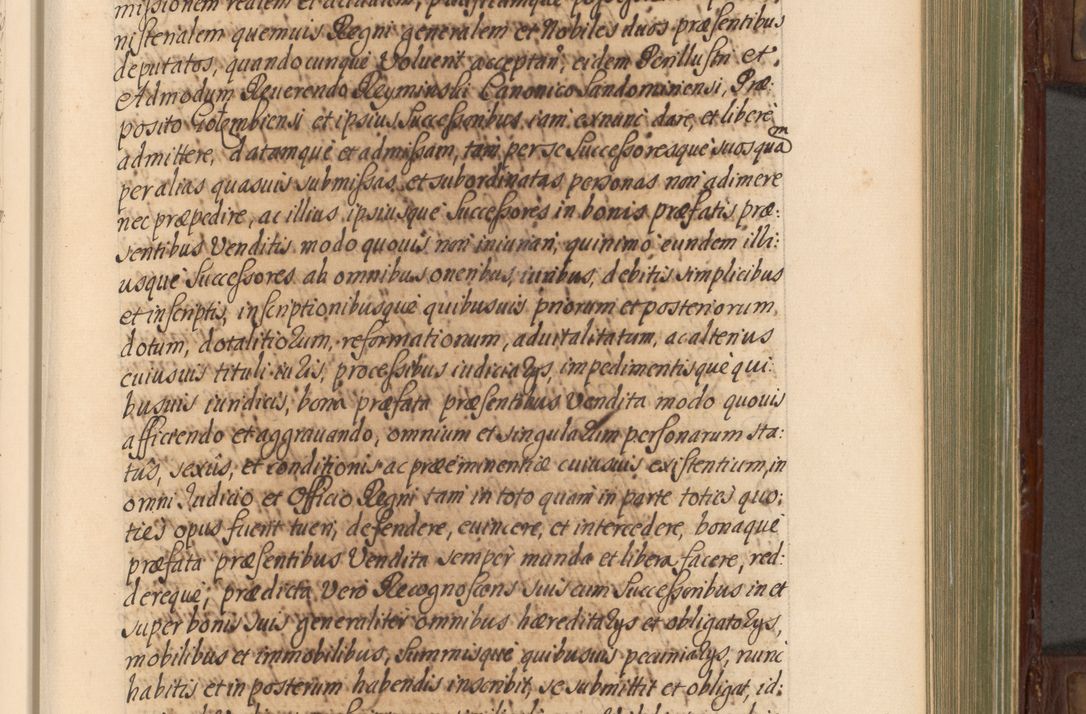 missionem realem et actualem,
nisterialem quemuis Regni generalem et Nobiles duos præsentibus
deputatos, quandocunque Voluerit acceptari, eidem Perillustri et
Admodum Reuerendo Reyminski Canonico Sandomiriensi, Præ:
posito Golembiensi et ipsius Successoribus iam exnunc dare, et liberè
admittere, datamque et admissam, tam per se Successoresque suos quam
per alias quasuis submissas et subordinatas personas non adimere
nec præpedire, ac illius ipsiusque Successores in bonis præfatis præ:
sentibus Venditis modo quouis non iniuriari, quinimo eundem illi:
usque Successores ab omnibus oneribus, iuribus, debitis simplicibus
et inscriptis, inscriptionibusque quibusuis priorum et posteriorum,
dotum, dotalitiorum, reformationum, aduitalitatum, ac alterius
cuiusuis tituli iuris, processibus iudiciarijs, impedimentisque qui:
busuis iuridicis, bona præfata præsentibus Vendita modo quouis
afficiendo et aggrauando, omnium et singularum personarum sta:
tûs, sexûs, et conditionis ac præeminentiæ cuiusuis existentium, in
omni Iudicio et Officio Regni tam in toto quam in parte toties quo:
ties opus fuerit tueri, defendere, euincere, et intercedere, bonaque
præfata præsentibus Vendita semper munda et libera facere, red:
dereque; prædicta Vero Recognoscens suis cum Successoribus in et
super bonis suis generaliter omnibus hæreditarijs et obligatorijs,
mobilibus et immobilibus, Summisque quibusuis pecuniarijs, nunc
habitis et in posterum habendis inscribit, se submittit et obligat, id: